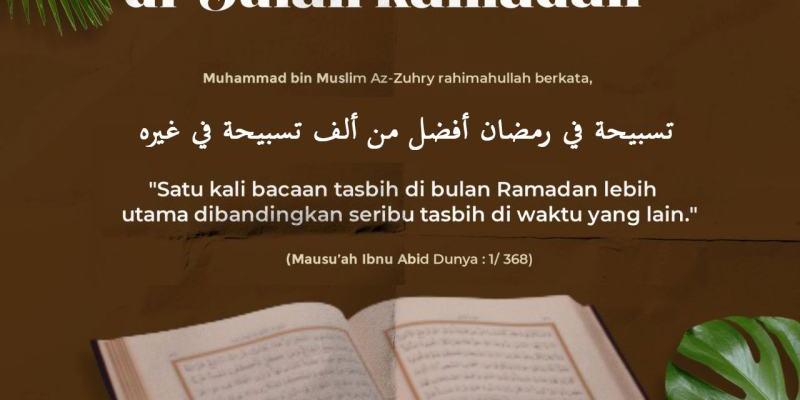 di Bulan Ramadan
Muhammad bin Muslim Az-Zuhry rahimahullah berkata,
تسبيحة في رمضان أفضل من ألف تسبيحة في غيره
"Satu kali bacaan tasbih di bulan Ramadan lebih
utama dibandingkan seribu tasbih di waktu yang lain."
(Mausu'ah Ibnu Abid Dunya : 1/ 368)